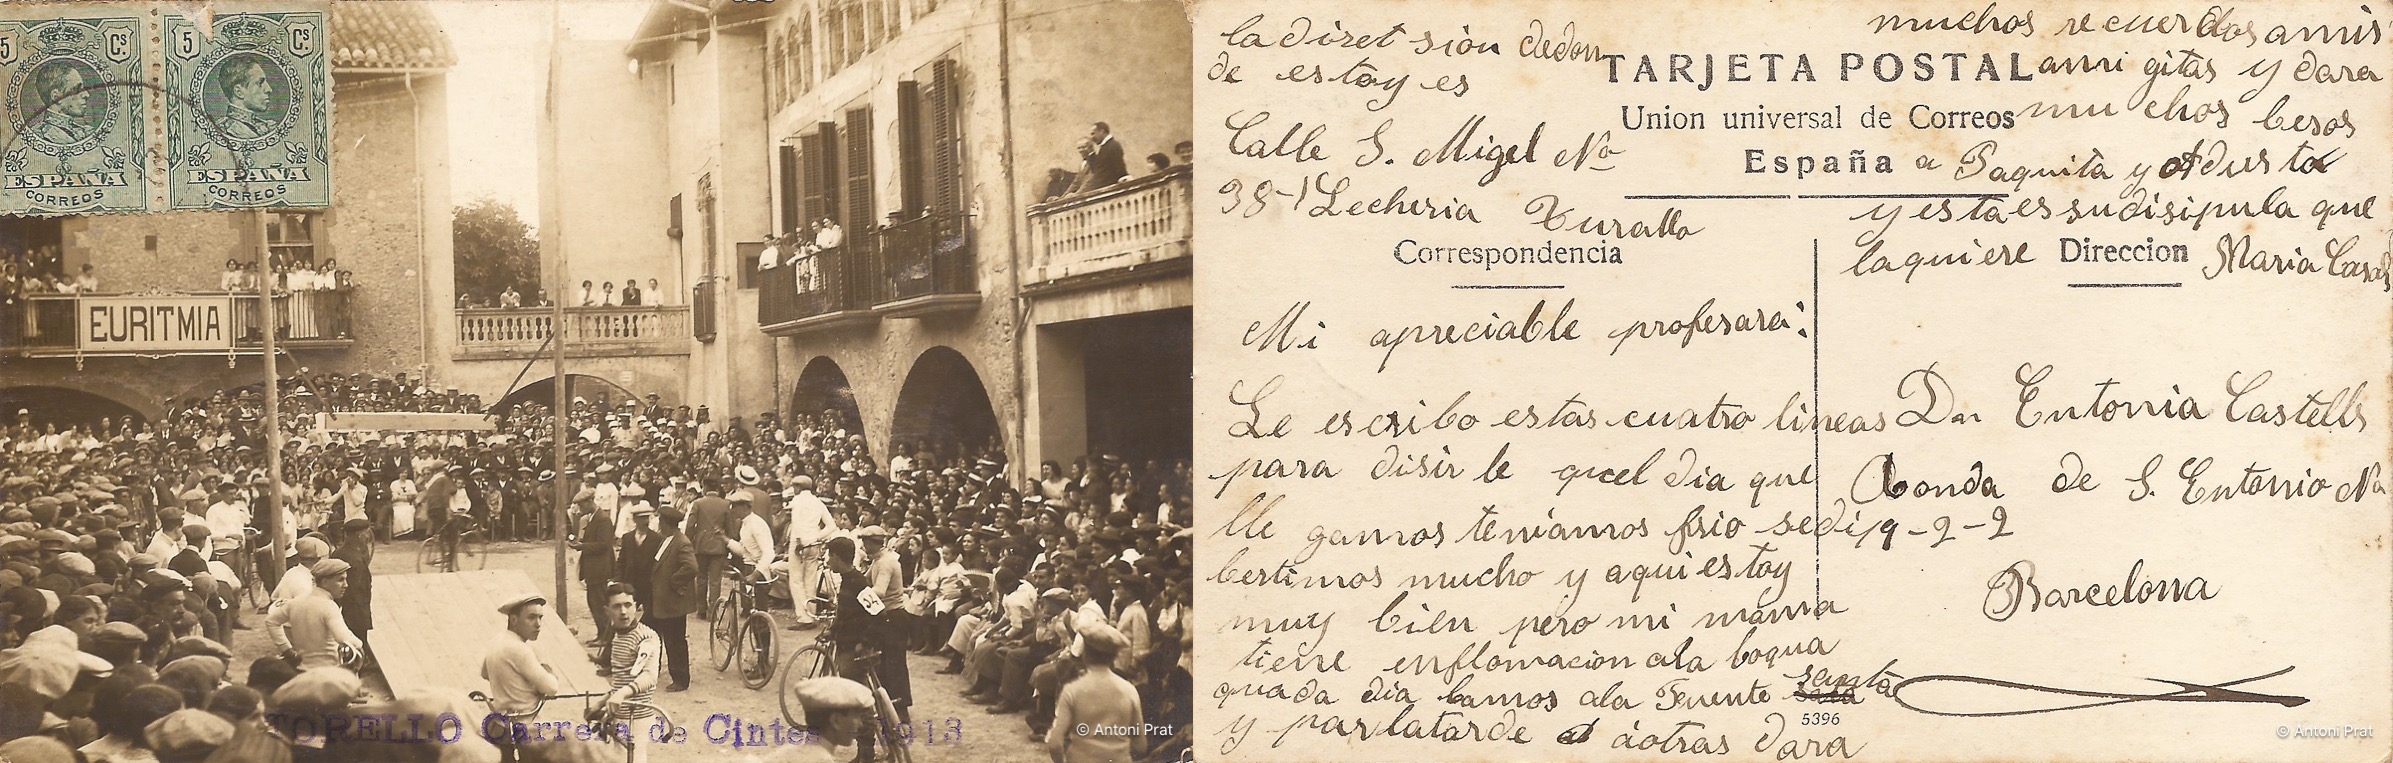 5 Cs.
5 Cs.
ESPAÑA
CORREOS
ESPAÑA
CORREOS
EURITMIA
TORELLO Carrera de Cintes 1913
© Antoni Prat
la diret sion dedon
de estoy es
Calle S. Migel No
38-1 Lecheria Turallo
muchos recuerdos a mis
TARJETA POSTAL
ami gitas y dara
Union universal de Correos
mu chos besos
España
a Paquita y Adusta
y esta es su disipula que
la quiere
Maria Casals
Correspondencia
Direccion
Mi apreciable profesara:
Le escribo estas cuatro lineas
para disir le quel dia que
lle gamos teniamos frio se di
bertimos mucho y aqui estoy
muy bien pero mi mama
tiene enflomacion ala boqua
quada dia bamos ala Fuente santa
y par la tarde á otras dara
Dn Entonia Castells
Ronda de S. Entonio No
19-2-2
Barcelona
5396
© Antoni Prat